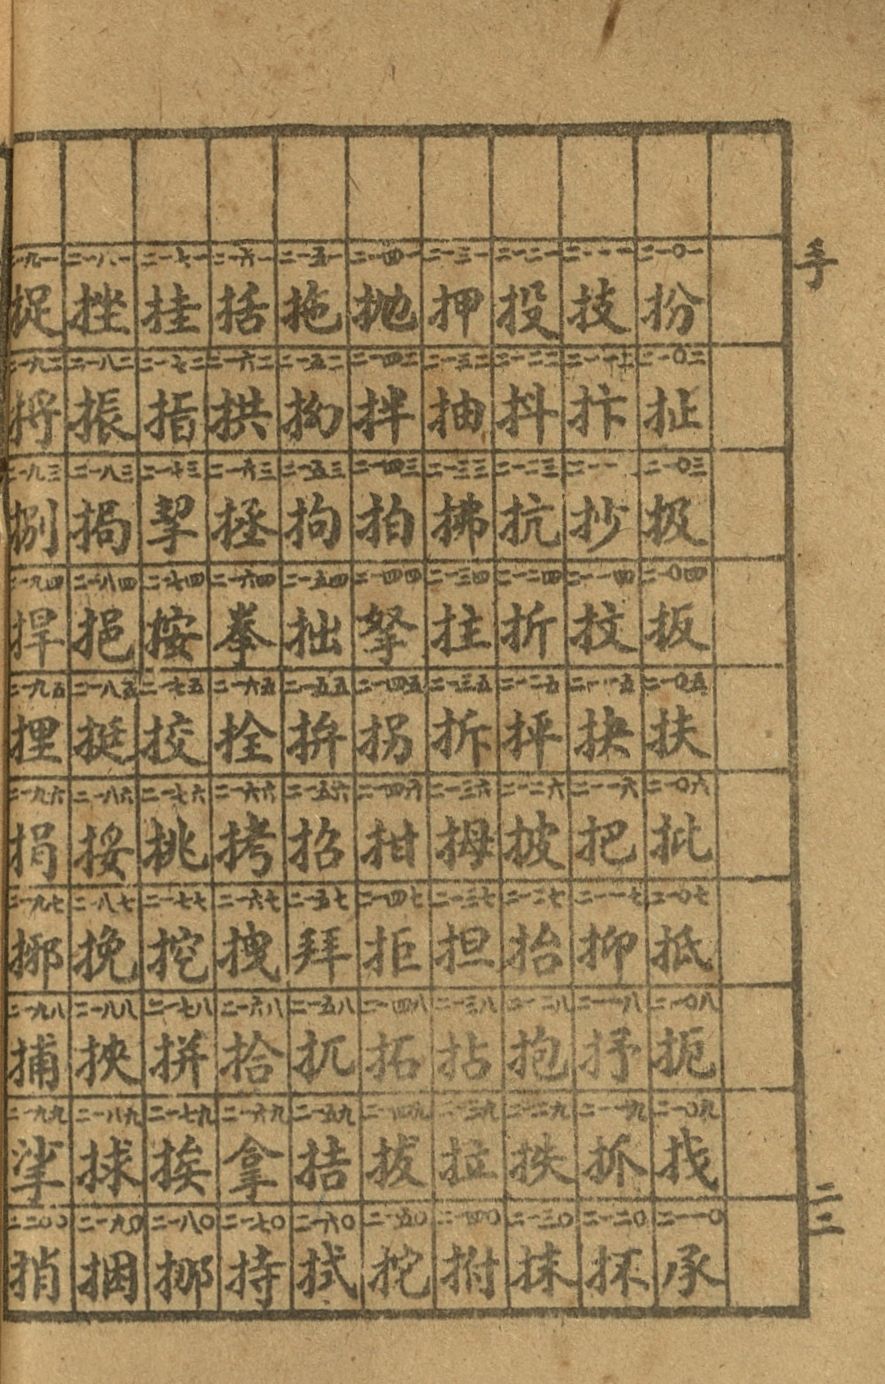 手
二一〇一 扮 二一〇二 扯 二一〇三 扱 二一〇四 扳 二一〇五 扶 二一〇六 批 二一〇七 抵 二一〇八 扼 二一〇九 找 二一一〇 承
二一一一 技 二一一二 抃 二一一 抄 二一一四 抆 二一一五 抉 二一一六 把 二一一七 抑 二一一八 抒 二一一九 抓 二一二〇 抔
二一二一 投 二一二二 抖 二一二三 抗 二一二四 折 二一二五 抨 二一二六 披 二一二七 抬 二一二八 抱 二一二九 抶 二一三〇 抹
二一三一 押 二一三二 抽 二一三三 拂 二一三四 拄 二一三五 拆 二一三六 拇 二一三七 担 二一三八 拈 二一三九 拉 二一四〇 拊
二一四一 拋 二一四二 拌 二一四三 拍 二一四四 拏 二一四五 拐 二一四六 拑 二一四七 拒 二一四八 拓 二一四九 拔 二一五〇 拕
二一五一 拖 二一五二 拗 二一五三 拘 二一五四 拙 二一五五 拚 二一五六 招 二一五七 拜 二一五八 扤 二一五九 拮 二一六〇 拭
二一六一 括 二一六二 拱 二一六三 拯 二一六四 拳 二一六五 拴 二一六六 拷 二一六七 拽 二一六八 拾 二一六九 拿 二一七〇 持
二一七一 挂 二一七二 指 二一七三 挈 二一七四 按 二一七五 挍 二一七六 挑 二一七七 挖 二一七八 拼 二一七九 挨 二一八〇 挪
二一八一 挫 二一八二 振 二一八三 挶 二一八四 挹 二一八五 挺 二一八六 挼 二一八七 挽 二一八八 挾 二一八九 捄 二一九〇 捆
二一九一 捉 二一九二 捋 二一九三 捌 二一九四 捍 二一九五 捚 二一九六 捐 二一九七 捓 二一九八 捕 二一九九 挲 二二〇〇 捎
二三